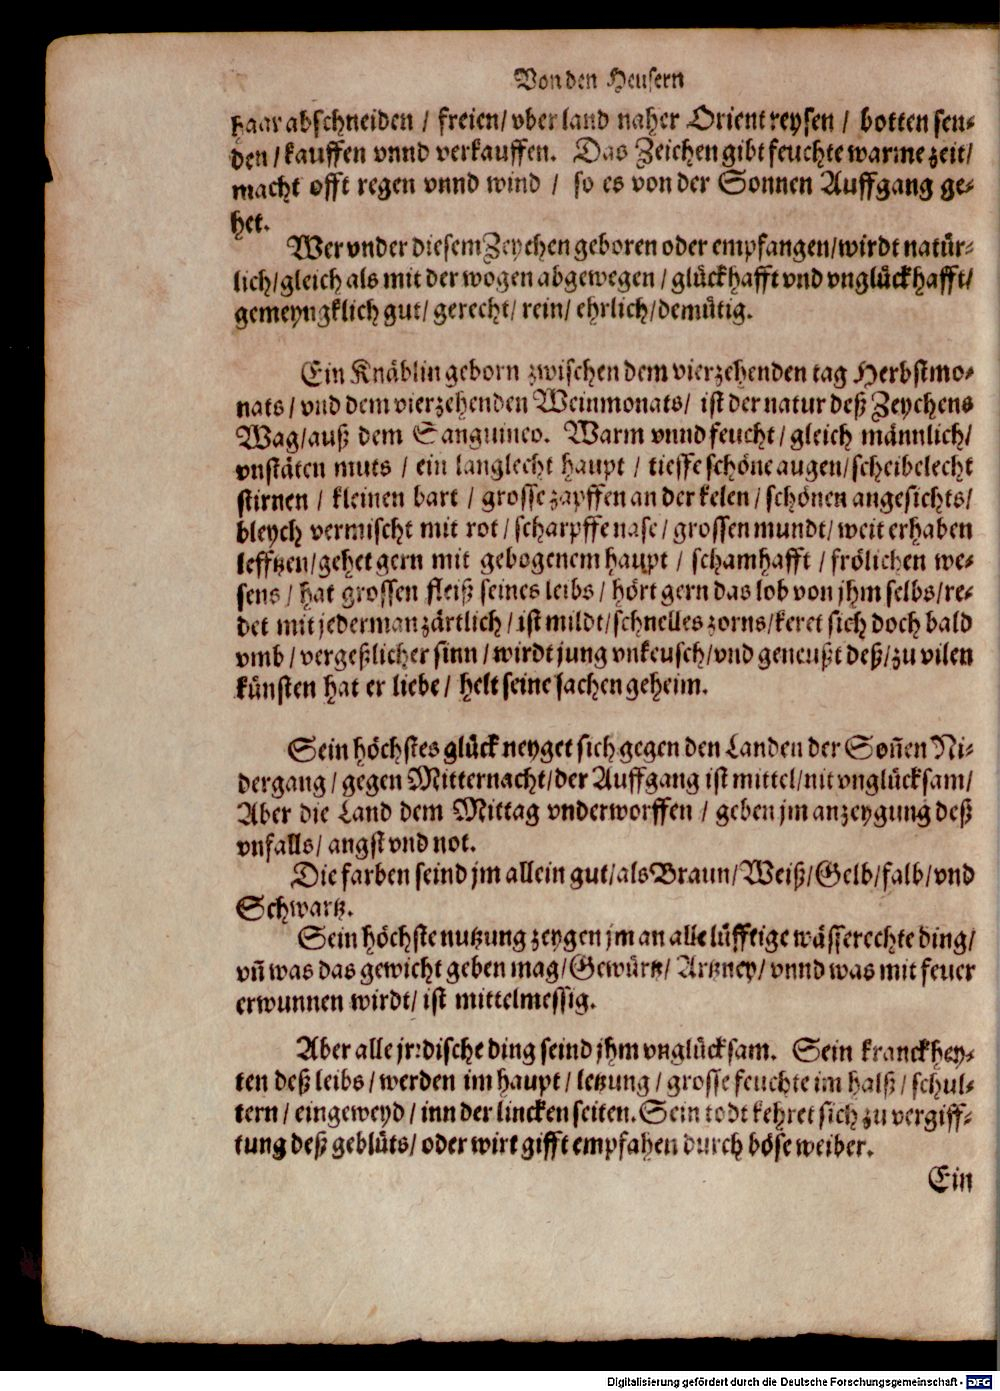 Von den Heusern
haar abschneiden / freien/ vber land naher Orient reysen / botten sen⸗
den / kauffen vnnd verkauffen. Das Zeichen gibt feuchte warme zeit/
macht offt regen vnnd wind / so es von der Sonnen Auffgang ge⸗
het.
Wer vnder diesem Zeychen geboren oder empfangen/wirdt natür⸗
lich/gleich als mit der wogen abgewegen / glückhafft vnd vnglückhafft/
gemeyngklich gut/ gerecht/ rein/ ehrlich/demütig.
Ein Knäblin geborn zwischen dem vierzehenden tag Herbstmo⸗
nats / vnd dem vierzehenden Weinmonats/ ist der natur deß Zeychens
Wag/auß dem Sanguineo. Warm vnnd feucht / gleich männlich/
vnstäten muts / ein langlecht haupt / tieffe schöne augen/scheibelecht
stirnen / kleinen bart / grosse zapffen an der kelen / schönen angesichts/
bleych vermischt mit rot / scharpffe nase / grossen mundt/ weit erhaben
lefftzen/gehet gern mit gebogenem haupt / schamhafft / frölichen we⸗
sens / hat grossen fleiß seines leibs / hört gern das lob von jhm selbs/re⸗
det mit jederman zärtlich / ist mildt/schnelles zorns/keret sich doch bald
vmb / vergeßlicher sinn / wirdt jung vnkeusch/vnd geneußt deß/zu vilen
künsten hat er liebe / helt seine sachen geheim.
Sein höchstes glück neyget sich gegen den Landen der Soñen Ni⸗
dergang / gegen Mitternacht/der Auffgang ist mittel/nit vnglücksam/
Aber die Land dem Mittag vnderworffen / geben jm anzeygung deß
vnfalls/ angst vnd not.
Die farben seind jm allein gut/als Braun/Weiß/Gelb/falb/vnd
Schwartz.
Sein höchste nutzung zeygen jm an alle lüfftige wässerechte ding/
vñ was das gewicht geben mag/Gewürtz/ Artzney/ vnnd was mit feuer
erwunnen wirdt/ ist mittelmessig.
Aber alle jrrdische ding seind jhm vnglücksam. Sein kranckhey⸗
ten deß leibs / werden im haupt / letzung / grosse feuchte im halß / schul⸗
tern / eingeweyd / inn der lincken seiten. Sein todt kehret sich zu vergiff⸗
tung deß geblüts/ oder wirt gifft empfahen durch böse weiber.
Ein
Digitalisierung gefördert durch die Deutsche Forschungsgemeinschaft - DFG